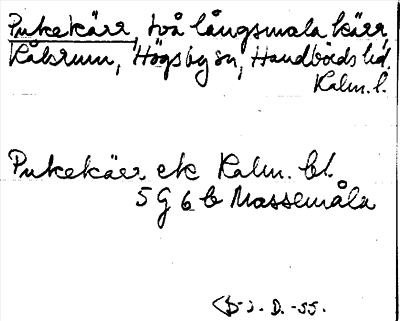 Pukekärr, två långsmala kärr,
Kåksrum, Högsby sn, Handbörds hd.
Kalm. l.
Pukekärr ek Kalm. bl.
5 G 6 b Massemåla
-55.